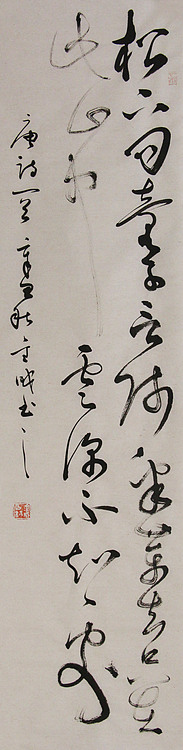 松下問童子言師采藥去只在
此山中雲深不知處
唐詩一首秋書